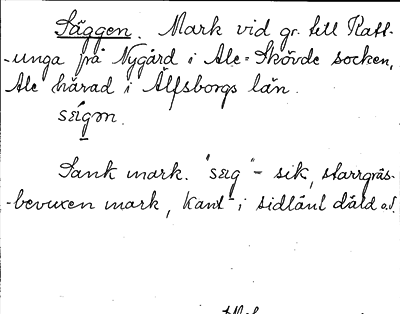 Säggen. Mark vid gr. till Ratt-
-unga från Nygård i Ale-Skövde socken,
Ale härad i Älfsborgs län.
sɛi̯gm.
Sank mark. "sɛig" - sik, starrgräs-
-bevuxen mark, kant i sidlänt dåld o.d.